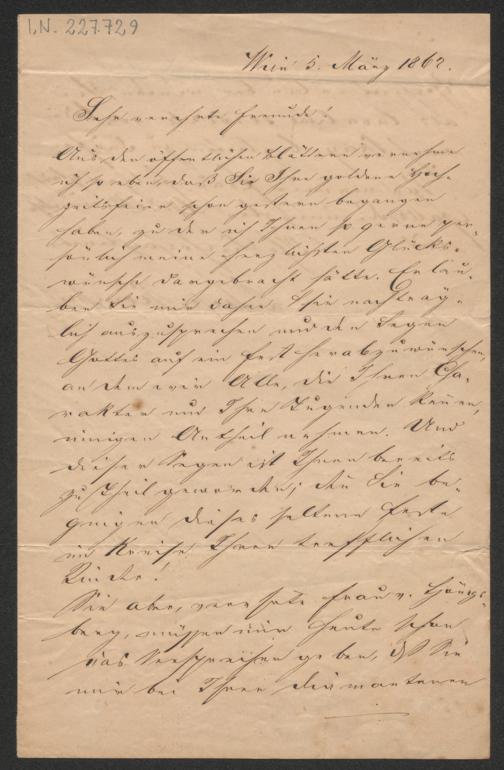 I.N. 227.729
Wien 5. März 1862.
Sehr verehrte Freunde!
Aus den öffentlichen Blättern vernehme
ich so eben, daß Sie Ihre goldene Hoch-
zeitsfeier schon gestern begangen
haben, zu der ich Ihnen so gerne per-
sönlich meine herzlichsten Glücks-
wünsche dargebracht hätte. Erlau-
ben Sie mir daher sie nachträg-
lich auszusprechen und den Segen
Gottes auf ein Fest herabzuwünschen,
an dem wir Alle, die Ihren Cha-
rakter und Ihre Tugenden kennen,
innigen Antheil nehmen. Und
dieser Segen ist Ihnen bereits
zu Theil geworden; denn Sie be-
gingen dieses seltene Fest
im Kreise Ihrer trefflichen
Kinder!
Sie aber, verehrte Frau v.
berg, müssen mir heute schon
das Versprechen geben, daß Sie
mir bei Ihrer diamantenen